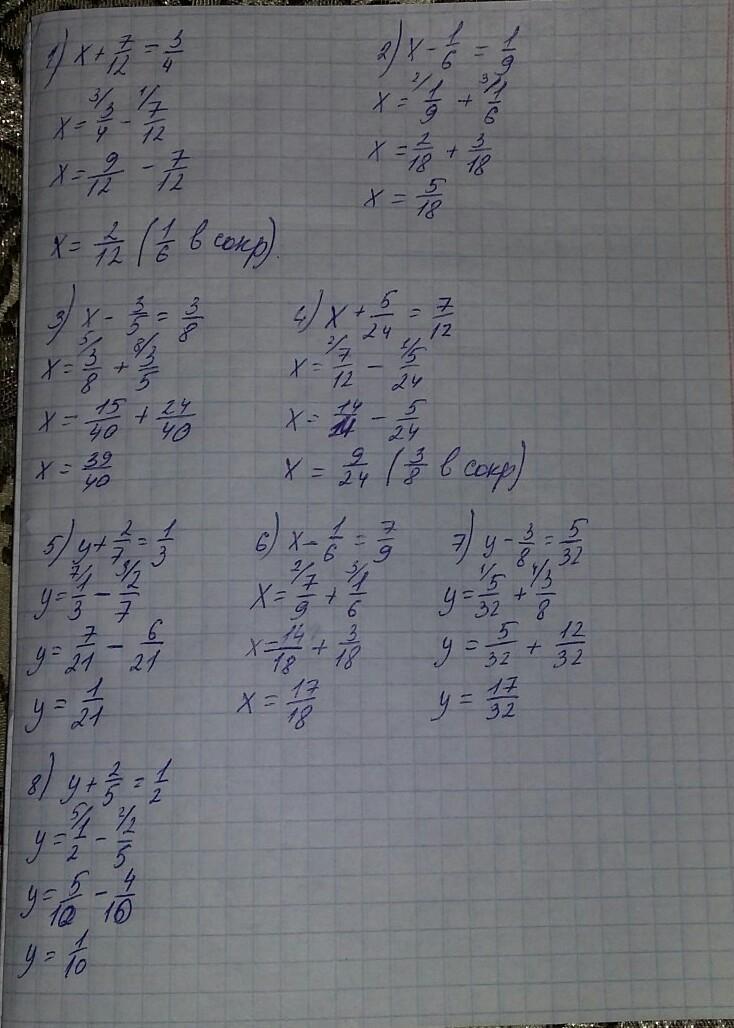 1) x + 7/12 = 3/4
x = ³⁄3/4 - ¹⁄7/12
x = 9/12 - 7/12
x = 2/12 (1/6 в сокр).
2) x - 1/6 = 1/9
x = ²⁄1/9 + ³⁄1/6
x = 2/18 + 3/18
x = 5/18
3) x - 3/5 = 3/8
x = ⁵⁄3/8 + ⁸⁄3/5
x = 15/40 + 24/40
x = 39/40
4) x + 5/24 = 7/12
x = ²⁄7/12 - ¹⁄5/24
x = 14/24 - 5/24
x = 9/24 (3/8 в сокр)
5) y + 2/7 = 1/3
y = ⁷⁄1/3 - ³⁄2/7
y = 7/21 - 6/21
y = 1/21
6) x - 1/6 = 7/9
x = ²⁄7/9 + ³⁄1/6
x = 14/18 + 3/18
x = 17/18
7) y - 3/8 = 5/32
y = ¹⁄5/32 + ⁴⁄3/8
y = 5/32 + 12/32
y = 17/32
8) y + 2/5 = 1/2
y = ⁵⁄1/2 - ²⁄2/5
y = 5/10 - 4/10
y = 1/10